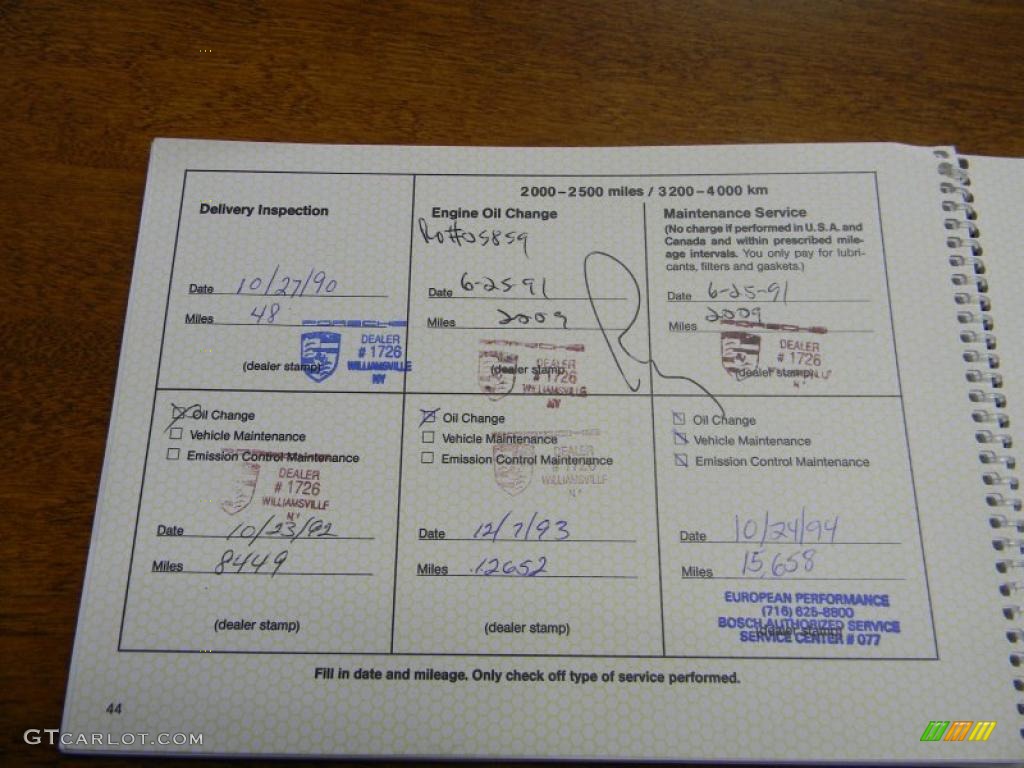 2000–2500 miles / 3200–4000 km
Delivery Inspection
Date 10/27/90
Miles 48
(dealer stamp)
PORSCHE
DEALER
# 1726
WILLIAMSVILLE
NY
Engine Oil Change
Ro#05859
Date 6-25-91
Miles 2009
(dealer stamp)
DEALER
# 1726
WILLIAMSVILLE
NY
Maintenance Service
(No charge if performed in U.S.A. and
Canada and within prescribed mile-
age intervals. You only pay for lubri-
cants, filters and gaskets.)
Date 6-25-91
Miles 2009
(dealer stamp)
DEALER
# 1726
Oil Change
Vehicle Maintenance
Emission Control Maintenance
DEALER
# 1726
WILLIAMSVILLE
NY
Date 10/23/92
Miles 8449
(dealer stamp)
Oil Change
Vehicle Maintenance
Emission Control Maintenance
DEALER
# 1726
WILLIAMSVILLE
Date 12/7/93
Miles 12652
(dealer stamp)
Oil Change
Vehicle Maintenance
Emission Control Maintenance
Date 10/24/94
Miles 15,658
EUROPEAN PERFORMANCE
(716) 625-8800
BOSCH AUTHORIZED SERVICE
(dealer stamp)
SERVICE CENTER # 077
Fill in date and mileage. Only check off type of service performed.
44
GTCARLOT.COM